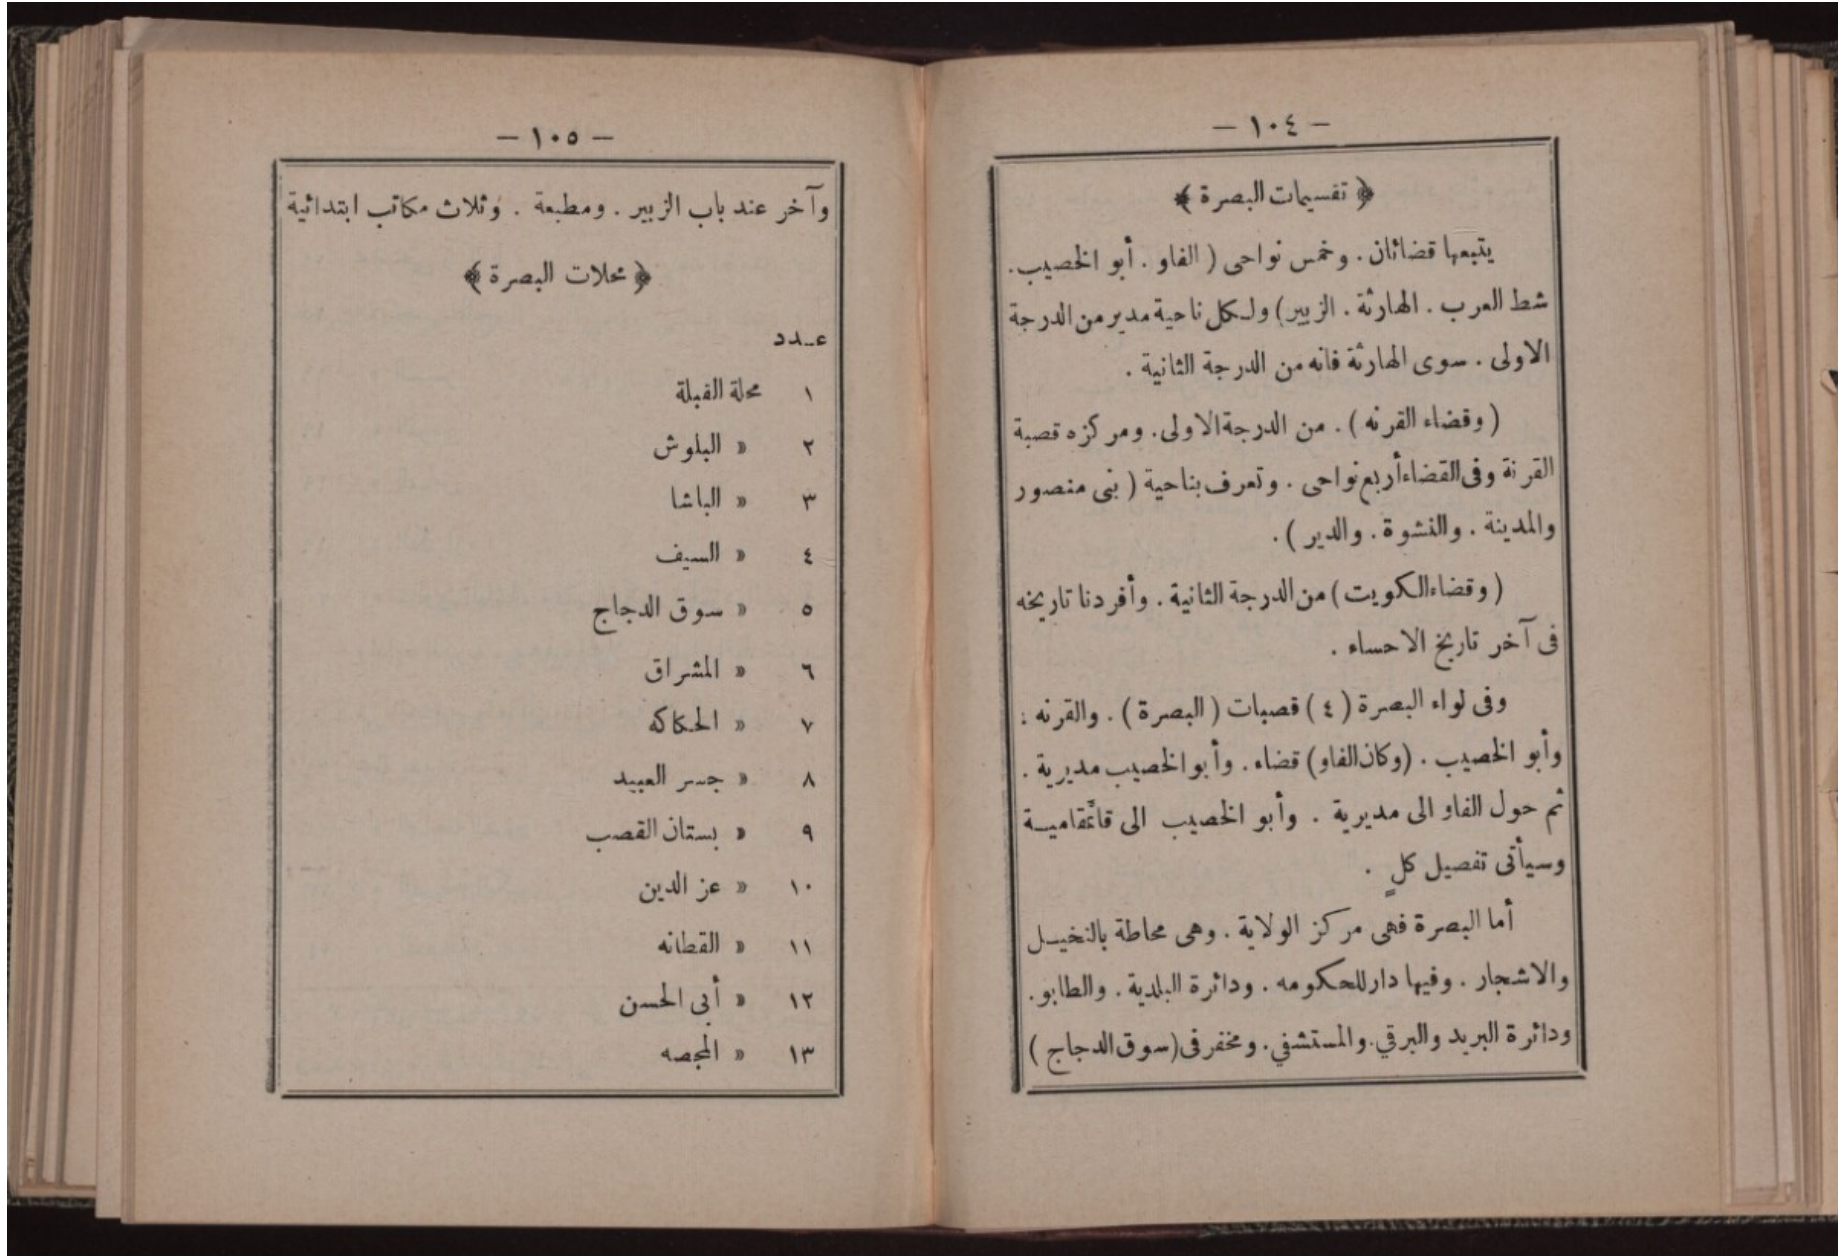 — ١٠٤ —
﴿ تقسيمات البصرة ﴾
يتبعها قضائان . وخمس نواحى ( الفاو . أبو الخصيب .
شط العرب . الهارثة . الزبير) ولكل ناحية مدير من الدرجة
الاولى . سوى الهارثة فانه من الدرجة الثانية .
( وقضاء القرنه ) . من الدرجة الاولى . ومركزه قصبة
القرنة وفى القضاء أربع نواحى . وتعرف بناحية ( بنى منصور
والمدينة . والنشوة . والدير ) .
( وقضاء الكويت ) من الدرجة الثانية . وأفردنا تاريخه
فى آخر تاريخ الاحساء .
وفى لواء البصرة ( ٤ ) قصبات ( البصرة ) . والقرنه :
وأبو الخصيب . (وكان الفاو) قضاء . وأبو الخصيب مديرية .
ثم حول الفاو الى مديرية . وأبو الخصيب الى قائمقامية
وسيأتى تفصيل كلٍ .
أما البصرة فهى مركز الولاية . وهى محاطة بالنخيل
والاشجار . وفيها دار للحكومه . ودائرة البلدية . والطابو .
ودائرة البريد والبرقي . والمستشفي . ومخفر فى (سوق الدجاج )
— ١٠٥ —
وآخر عند باب الزبير . ومطبعة . وثلاث مكاتب ابتدائية
﴿ محلات البصرة ﴾
عدد
١ محلة القبلة
٢ » البلوش
٣ » الباشا
٤ » السيف
٥ » سوق الدجاج
٦ » المشراق
٧ » الحكاكه
٨ » جسر العبيد
٩ » بستان القصب
١٠ » عز الدين
١١ » القطانه
١٢ » أبى الحسن
١٣ » المجصه